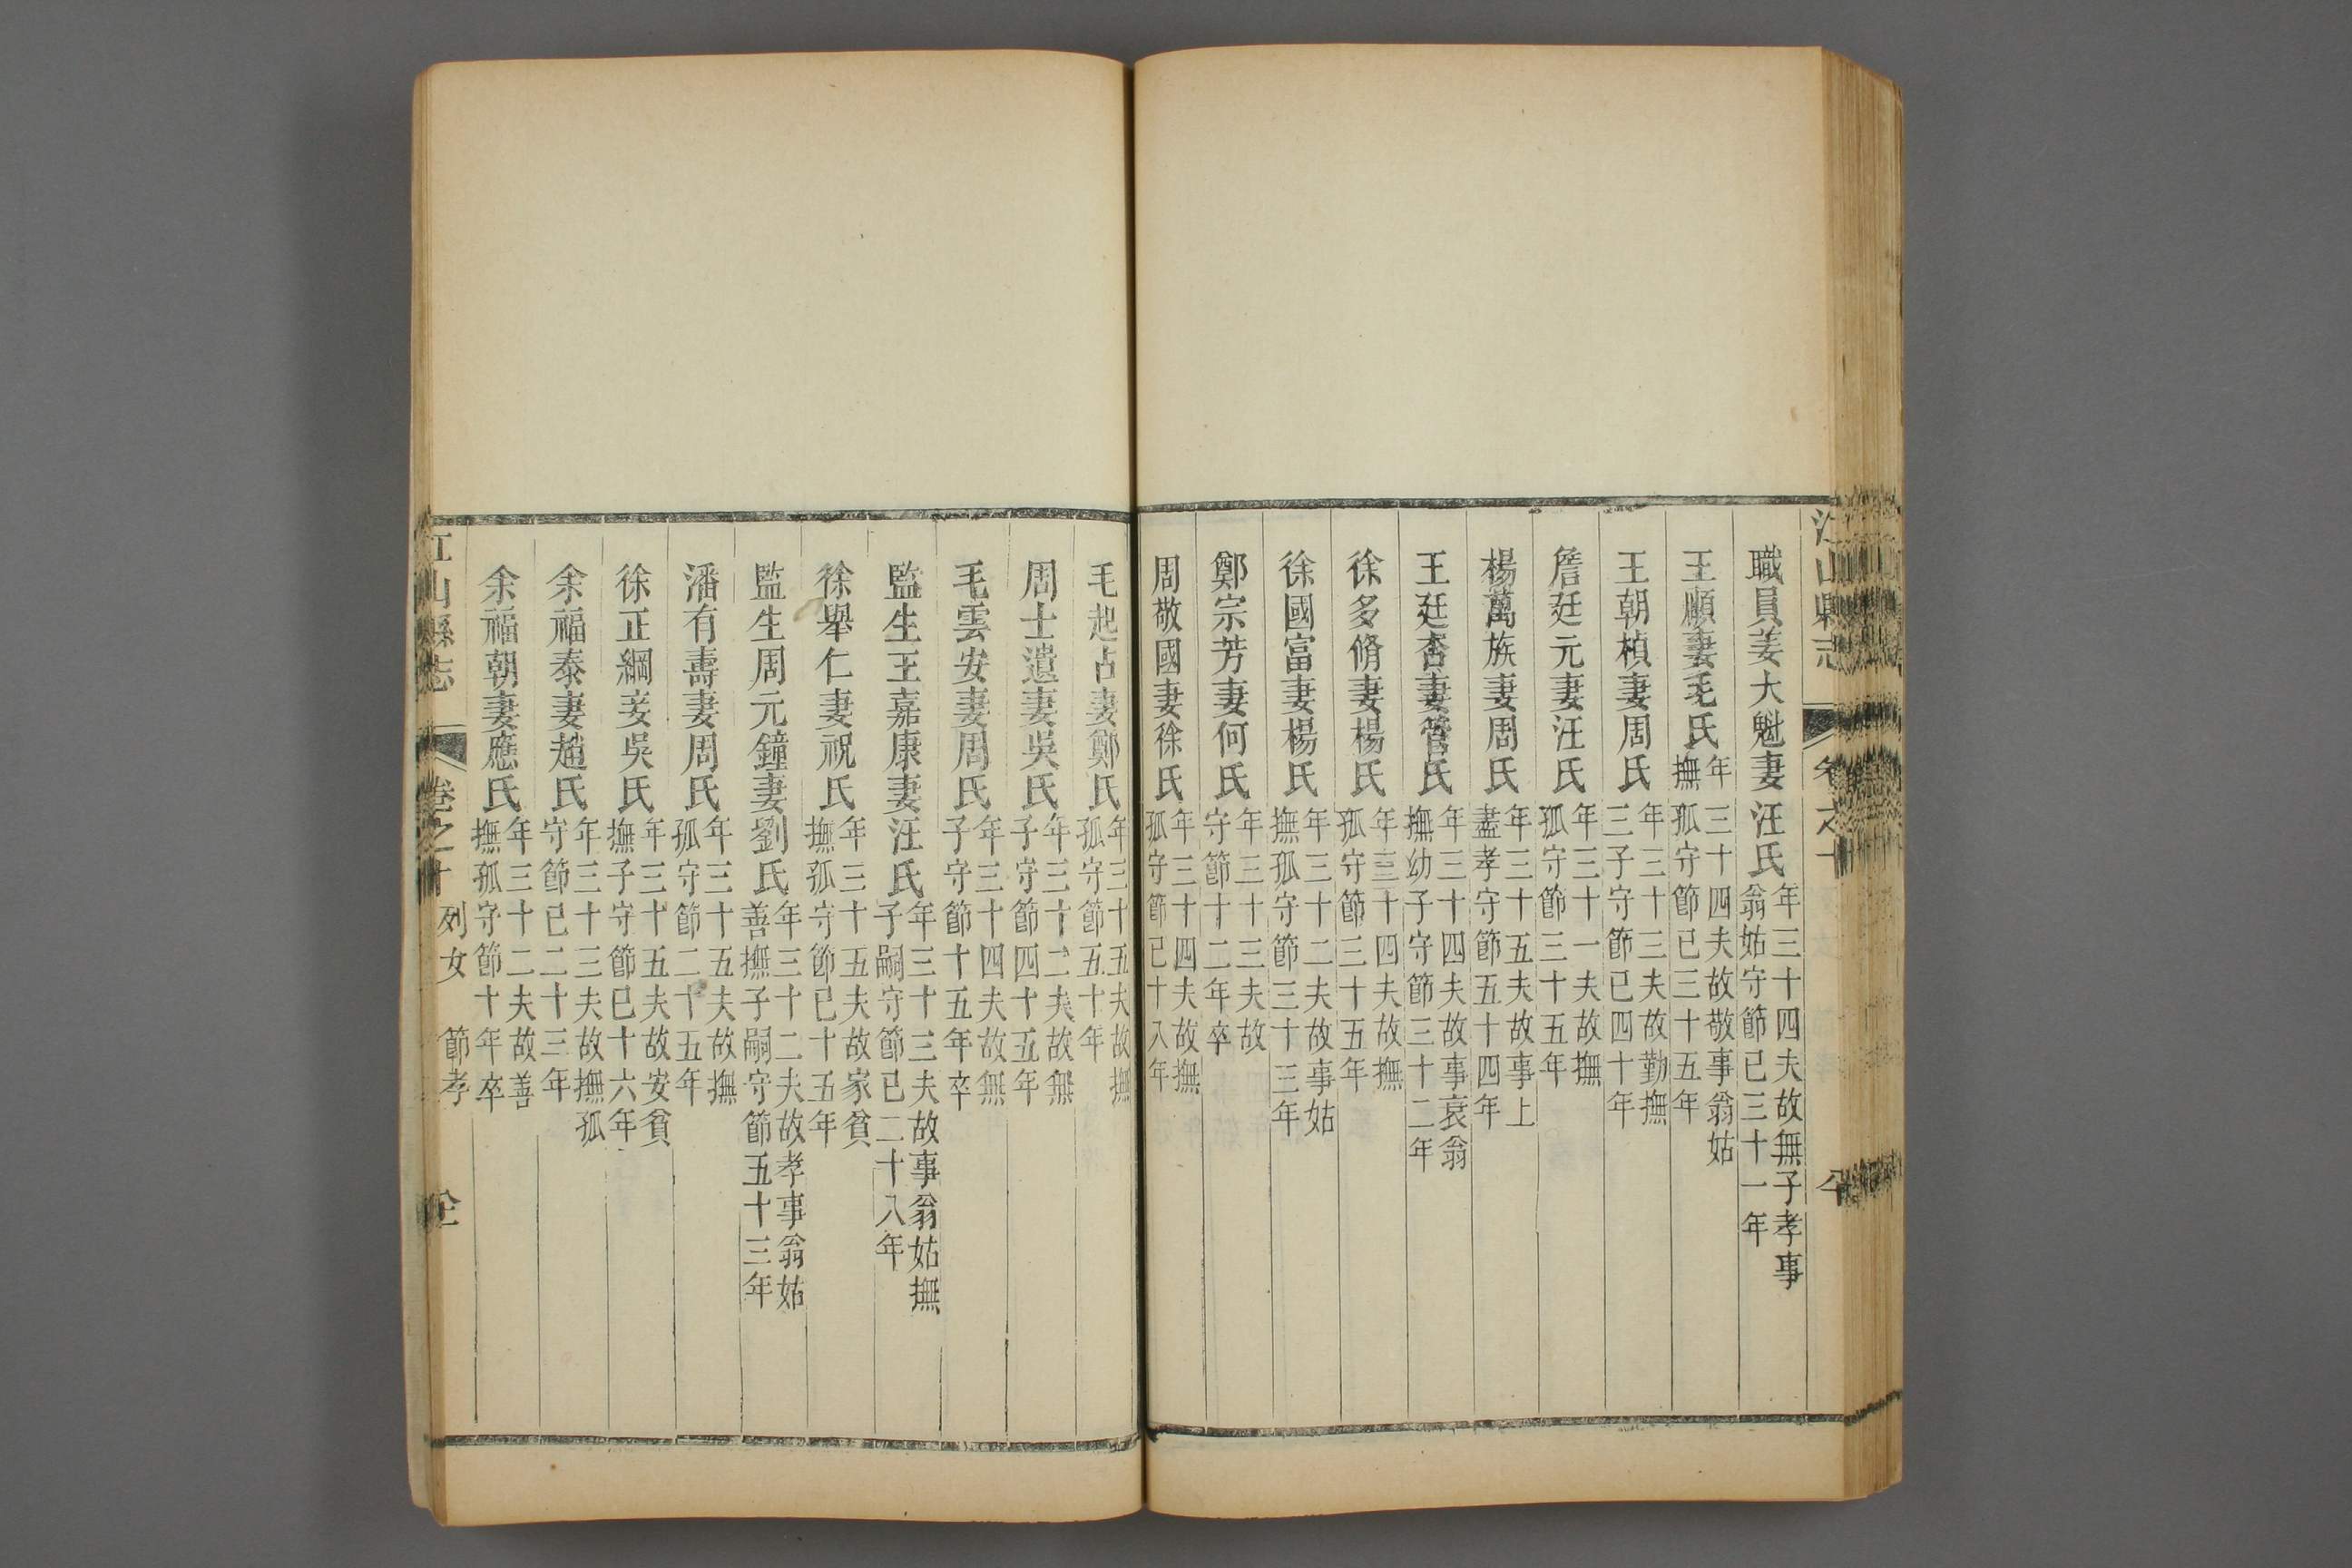 江山縣志 卷之十
職員姜大魁妻汪氏 年三十四夫故無子孝事翁姑守節已三十一年
王順妻毛氏 年三十四夫故敬事翁姑撫孤守節已三十五年
王朝楨妻周氏 年三十三夫故勤撫三子守節已四十年
詹廷元妻汪氏 年三十一夫故撫孤守節三十五年
楊萬族妻周氏 年三十五夫故事上盡孝守節五十四年
王廷杏妻管氏 年三十四夫故事衰翁撫幼子守節三十二年
徐多脩妻楊氏 年三十四夫故撫孤守節三十五年
徐國富妻楊氏 年三十二夫故事姑撫孤守節三十三年
鄭宗芳妻何氏 年三十三夫故守節十二年卒
周敬國妻徐氏 年三十四夫故撫孤守節已十八年
毛起占妻鄭氏 年三十五夫故撫孤守節五十年
周士遺妻吳氏 年三十二夫故無子守節四十五年
毛雲安妻周氏 年三十四夫故無子守節十五年卒
監生王嘉康妻汪氏 年三十三夫故事翁姑撫子嗣守節已二十八年
徐舉仁妻祝氏 年三十五夫故家貧撫孤守節已十五年
監生周元鐘妻劉氏 年三十二夫故孝事翁姑善撫子嗣守節五十三年
潘有壽妻周氏 年三十五夫故撫孤守節二十五年
徐正綱妾吳氏 年三十五夫故安貧撫子守節已十六年
余福泰妻趙氏 年三十三夫故撫孤守節已二十三年
余福朝妻應氏 年三十二夫故善撫孤守節十年卒
江山縣志 卷之十 列女 節孝